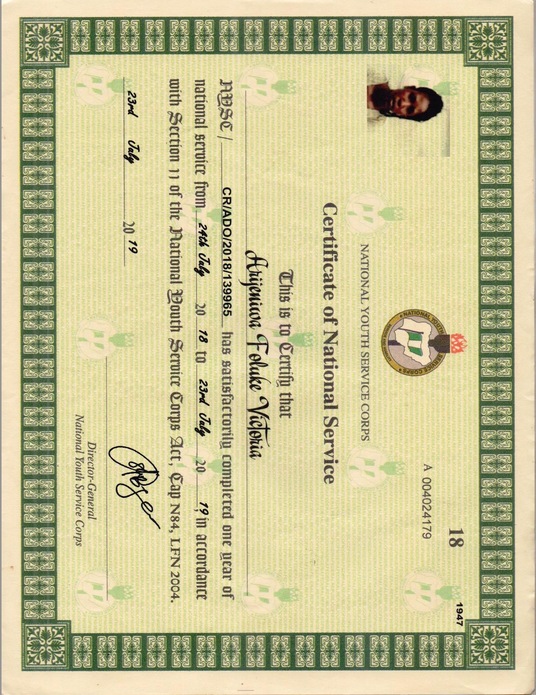 18
1947
A 004024179
NATIONAL YOUTH SERVICE CORPS
Certificate of National Service
This is to Certify that
Arijeniwa Foluke Victoria
NYSC / CR/ADO/2018/139965 has satisfactorily completed one year of
national service from 24th July 20 18 to 23rd July 20 19 in accordance
with Section 11 of the National Youth Service Corps Act, Cap N84, LFN 2004.
23rd July 20 19
Director-General
National Youth Service Corps